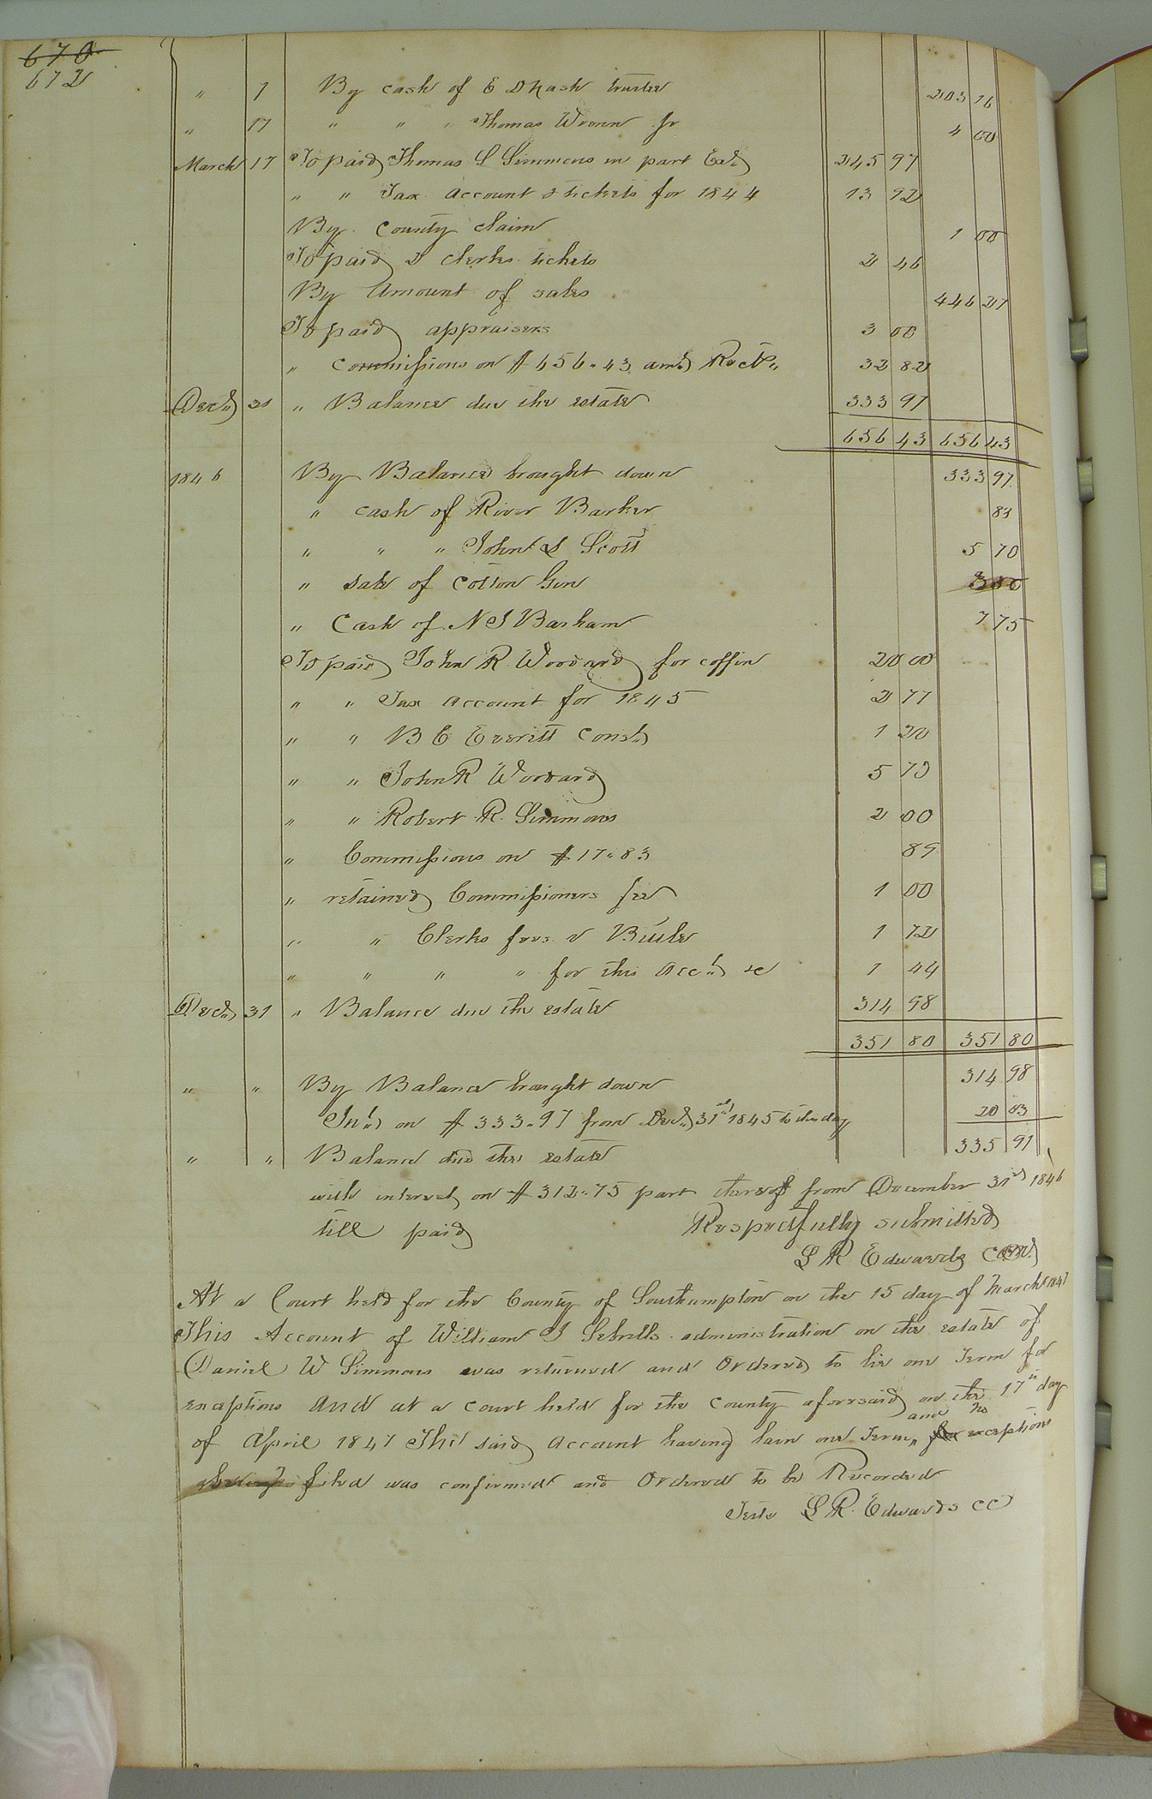 670
672
" 1 By cash of E D Nash trustee 203 16
" 17 " " " Thomas Wrenn Jr 4 00
March 17 To paid Thomas L Simmons in part Exd 245 97
" " Tax account & tickets for 1844 13 92
By County claim 1 00
To paid 2 clerks tickets 2 46
By Amount of sales 446 27
To paid appraisers 3 00
" Commissions on $656.43 amt Rects 32 82
Decr 31 " Balance due the estate 333 97
656 43 656 43
1846 By Balance brought down 333 97
" cash of River Barker 83
" " " John L Scott 5 70
" sale of Cotton Gin 3 50
" Cash of N S Barham 7 75
To paid John R Woodard for coffin 20 00
" " Tax account for 1845 2 77
" " B C Everitt Const 1 20
" " John R Woodard 5 73
" " Robert R. Simmons 2 00
" Commissions on $17.83 89
" retained Commissioners fee 1 00
" " Clerks fees 1 12
" " " " for this acct &c 1 44
Decr 31 " Balance due the estate 314 98
351 80 351 80
" " By Balance brought down 314 98
Int on $333.97 from Decr 31st 1845 to this day 20 03
" " Balance due the estate 335 91
with interest on $312.75 part thereof from December 31st 1846
till paid Respectfully submitted
L R Edwards Com
At a Court held for the County of Southampton on the 15 day of March 1847
This Account of William J Sebrells administration on the estate of
Daniel W Simmons was returned and Ordered to lie one Term for
exceptions And at a court held for the County aforesaid on the 17th day
of April 1847 The said Account having lain one Term and no exceptions
filed was confirmed and Ordered to be Recorded
Teste L R. Edwards CC